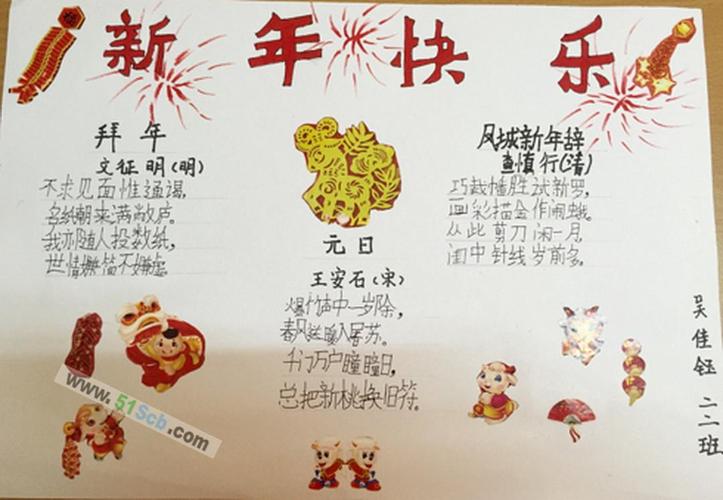 新年快乐
拜年
文征明(明)
不求见面惟通谒,
名纸朝来满敝庐。
我亦随人投数纸,
世情嫌简不嫌虚。
元日
王安石(宋)
爆竹声中一岁除,
春风送暖入屠苏。
千门万户瞳瞳日,
总把新桃换旧符。
凤城新年辞
查慎行(清)
巧裁幡胜试新罗,
画彩描金作闹蛾。
从此剪刀闲一月,
闺中针线岁前多。
吴佳钰 二二班
www.51Scb.com